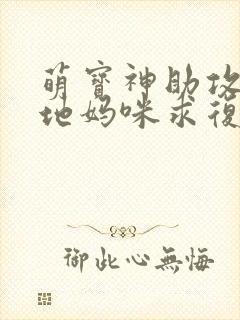 萌寶神助攻
地媽咪求復
御此心無悔